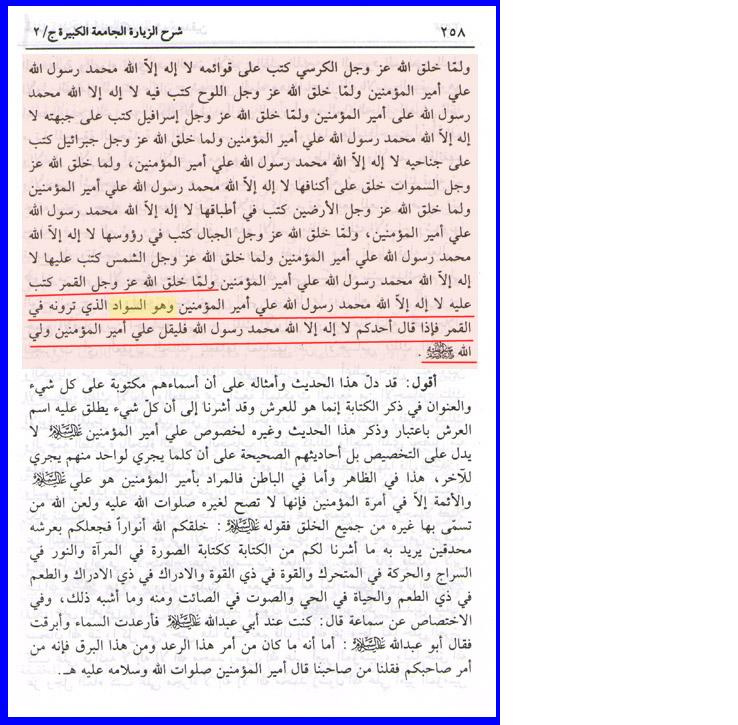 ٢٥٨ شرح الزيارة الجامعة الكبيرة ج/ ٢
ولمّا خلق الله عز وجل الكرسي كتب على قوائمه لا إله إلاّ الله محمد رسول الله
علي أمير المؤمنين ولمّا خلق الله عز وجل اللوح كتب فيه لا إله إلا الله محمد
رسول الله على أمير المؤمنين ولمّا خلق الله عز وجل إسرافيل كتب على جبهته لا
إله إلاّ الله محمد رسول الله علي أمير المؤمنين ولما خلق الله عز وجل جبرائيل كتب
على جناحيه لا إله إلاّ الله محمد رسول الله علي أمير المؤمنين، ولما خلق الله عز
وجل السموات خلق على أكنافها لا إله إلاّ الله محمد رسول الله علي أمير المؤمنين
ولما خلق الله عز وجل الأرضين كتب في أطباقها لا إله إلاّ الله محمد رسول الله
علي أمير المؤمنين، ولمّا خلق الله عز وجل الجبال كتب في رؤوسها لا إله إلا الله
محمد رسول الله علي أمير المؤمنين ولما خلق الله عز وجل الشمس كتب عليها لا
إله إلاّ الله محمد رسول الله علي أمير المؤمنين ولمّا خلق الله عز وجل القمر كتب
عليه لا إله إلاّ الله محمد رسول الله علي أمير المؤمنين وهو السواد الذي ترونه في
القمر فإذا قال أحدكم لا إله إلا الله محمد رسول الله فليقل علي أمير المؤمنين ولي
الله ﷺ .
أقول: قد دلّ هذا الحديث وأمثاله على أن أسماءهم مكتوبة على كل شيء
والعنوان في ذكر الكتابة إنما هو للعرش وقد أشرنا إلى أن كلّ شيء يطلق عليه اسم
العرش باعتبار وذكر هذا الحديث وغيره لخصوص علي أمير المؤمنين عليه السلام لا
يدل على التخصيص بل أحاديثهم الصحيحة على أن كلما يجري لواحد منهم يجري
للآخر، هذا في الظاهر وأما في الباطن فالمراد بأمير المؤمنين هو علي عليه السلام
والأئمة إلاّ في أمرة المؤمنين فإنها لا تصح لغيره صلوات الله عليه ولعن الله من
تسمّى بها غيره من جميع الخلق فقوله عليه السلام : خلقكم الله أنواراً فجعلكم بعرشه
محدقين يريد به ما أشرنا لكم من الكتابة ككتابة الصورة في المرآة والنور في
السراج والحركة في المتحرك والقوة في ذي القوة والادراك في ذي الادراك والطعم
في ذي الطعم والحياة في الحي والصوت في الصائت ومنه وما أشبه ذلك، وفي
الاختصاص عن سماعة قال: كنت عند أبي عبدالله عليه السلام فأرعدت السماء وأبرقت
فقال أبو عبدالله عليه السلام : أما أنه ما كان من أمر هذا الرعد ومن هذا البرق فإنه من
أمر صاحبكم فقلنا من صاحبنا قال أمير المؤمنين صلوات الله وسلامه عليه هـ.